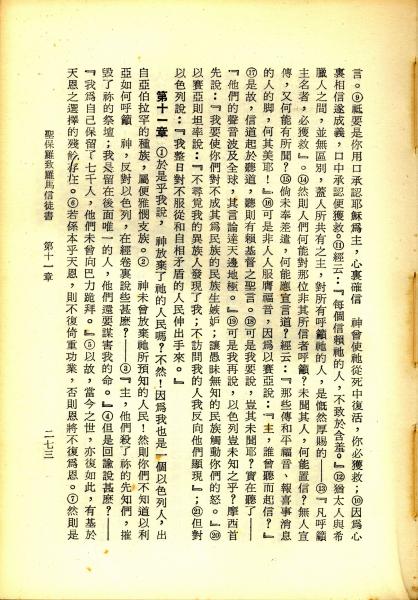 言。⑨祗要是你用口承認耶穌爲主，心裏確信　神曾使祂從死中復活，你必獲救；⑩因爲心
裏相信遂成義，口中承認便獲救。⑪經云：『每個信賴祂的人，不致於含羞。』⑫猶太人與希
臘人之間，並無區別，蓋人所共有之主，對所有呼籲祂的人，是慨然厚賜的——⑬『凡呼籲
主名者，必獲救。』⑭然則人們何能對那位非其所信者呼籲？未聞其人，何能置信？無人宣
傳，又何能有所聞？⑮倘未奉差遣，何能應宣言道？經云：『那些傳和平福音、報喜事消息
的人的脚，何其美耶！』⑯可是非人人服膺福音，因爲以賽亞說：『主，誰曾聽而起信？』
⑰是故，信道起於聽道，聽道則有賴基督之聖言。⑱可是我要說，豈其未聞耶？實在聽了——
『他們的聲音波及全球，其言論達天邊地極。』⑲可是我再說，以色列豈未知之乎？摩西首
先說：『我要使你們對不成其爲民族的民族生嫉妬；讓愚昧無知的民族激動你們的怒。』⑳
以賽亞則坦率說：『不尋覓我的異族人發現了我；不訪問我的人我反向他們顯現』；㉑但對
以色列說：『我整日對不服從和自相矛盾的人民伸出手來。』
第十一章　①於是乎我說，神放棄了祂的人民嗎？不然！因爲我也是一個以色列人，出
自亞伯拉罕的種族，屬便雅憫支族。②　神未曾放棄祂所預知的人民！然則你們不知道以利
亞如何呼籲　神，反對以色列，在經卷裏說些甚麽？——③『主，他們殺了祢的先知們，摧
毁了祢的祭壇；我是留在後面唯一的人，他們還要謀害我的命。』④但是回諭說甚麽？——
『我爲自己保留了七千人，他們未曾向巴力跪拜。』⑤以故，當今之世，亦復如此，有基於
天恩之選擇的殘餘存在。⑥若係本乎天恩，則不復倚重功業，否則恩將不復爲恩。⑦然則是
聖保羅致羅馬信徒書　第十一章
二七三